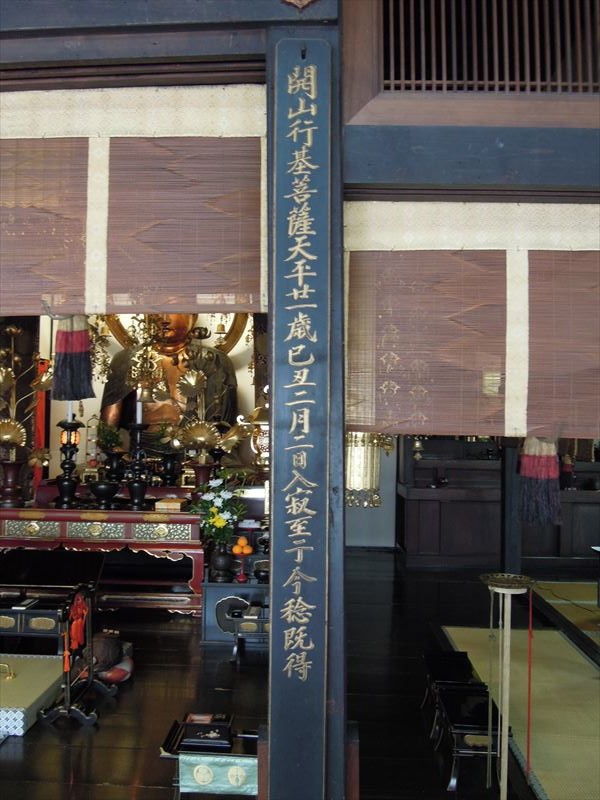 開山行基菩薩天平廿一歳己丑二月二日入寂至于今稔既得